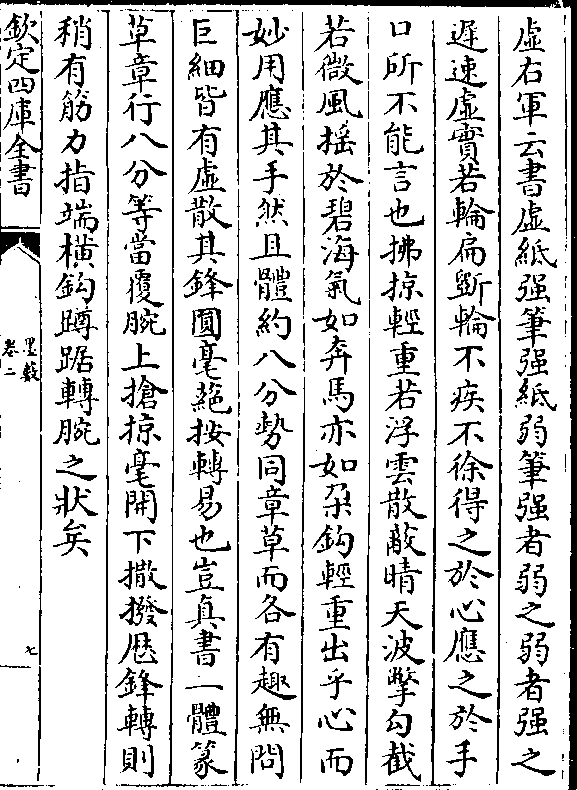 虛右軍云書虛紙强筆强紙弱筆强者弱之弱者强之
遲速虛實若輪扁斵輪不疾不徐得之於心應之於手
口所不能言也拂掠輕重若浮雲散蔽晴天波撆勾截
若微風摇於碧海氣如奔馬亦如朶鈎輕重出乎心而
妙用應其手然且體約八分勢同章草而各有趣無問
巨細皆有虛散其鋒圓毫蕝按轉易也豈真書一體篆
草章行八分等當覆腕上搶掠毫開下撒撥厯鋒轉則
稍有筋力指端横鈎蹲踞轉腕之狀矣
欽定四庫全書
墨藪
卷二
七